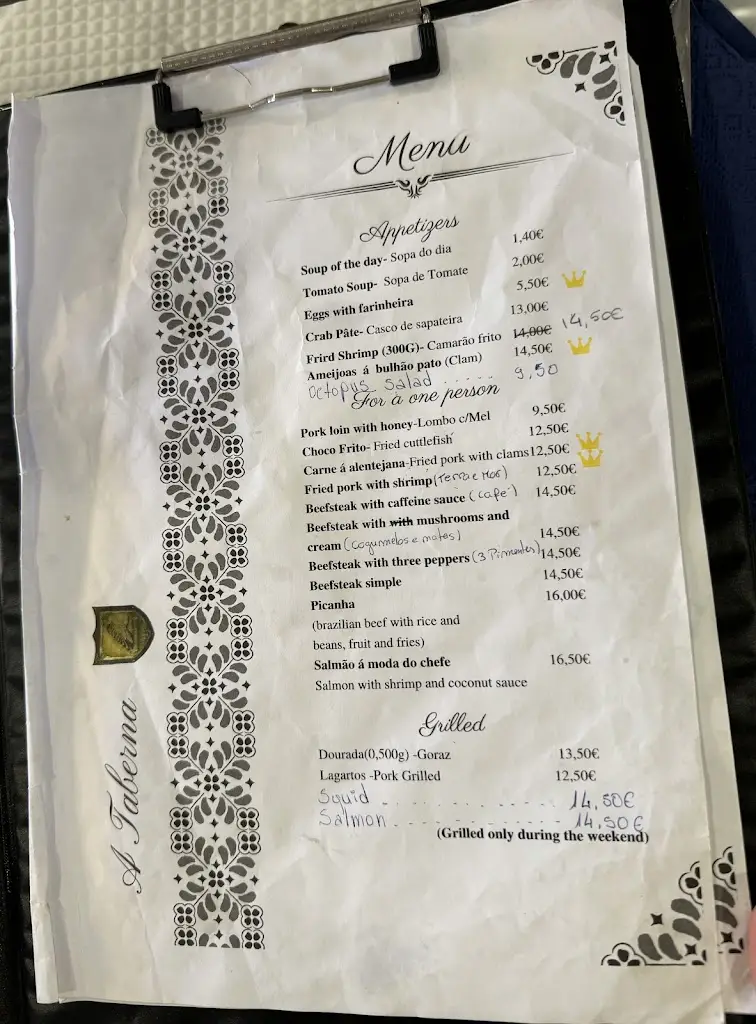 Menu
Appetizers
Soup of the day- Sopa do dia 1,40€
Tomato Soup- Sopa de Tomate 2,00€
Eggs with farinheira 5,50€
Crab Pâte- Casco de sapateira 13,00€
Frird Shrimp (300G)- Camarão frito 14,00€ 14,50€
Ameijoas á bulhão pato (Clam) 14,50€
Octopus Salad ..... 9,50
For à one person
Pork loin with honey-Lombo c/Mel 9,50€
Choco Frito- Fried cuttlefish 12,50€
Carne á alentejana-Fried pork with clams 12,50€
Fried pork with shrimp (Terra e Mar) 12,50€
Beefsteak with caffeine sauce (café) 14,50€
Beefsteak with with mushrooms and
cream (cogumelos e natas) 14,50€
Beefsteak with three peppers (3 Pimentas) 14,50€
Beefsteak simple 14,50€
Picanha 16,00€
(brazilian beef with rice and
beans, fruit and fries)
Salmão á moda do chefe 16,50€
Salmon with shrimp and coconut sauce
Grilled
Dourada(0,500g) -Goraz 13,50€
Lagartos -Pork Grilled 12,50€
Squid - - - - - - - - - - 14,50€
Salmon - - - - - - - - - - 14,50€
(Grilled only during the weekend)
A Taberna